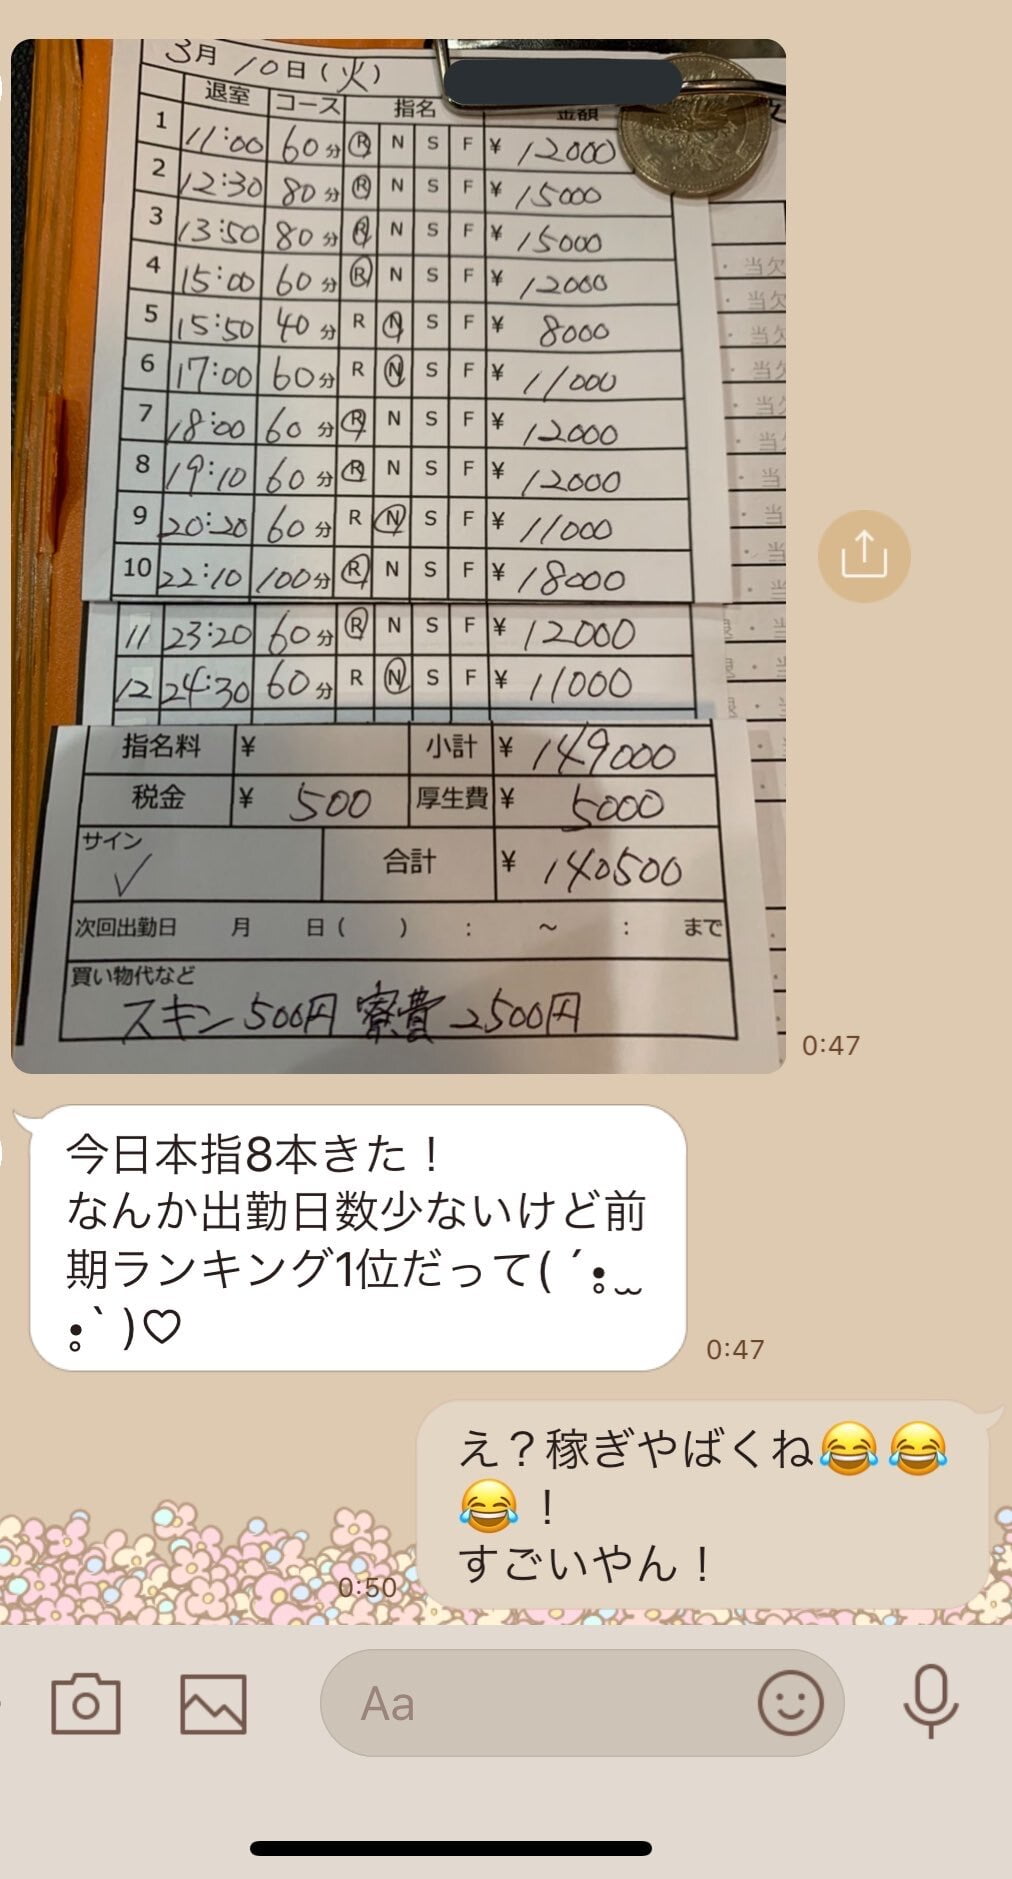 3月 10日(火)
退室 コース 指名 金額
1 11:00 60分 R N S F ¥ 12000
2 12:30 80分 R N S F ¥ 15000
3 13:50 80分 R N S F ¥ 15000
4 15:00 60分 R N S F ¥ 12000
5 15:50 40分 R N S F ¥ 8000
6 17:00 60分 R N S F ¥ 11000
7 18:00 60分 R N S F ¥ 12000
8 19:10 60分 R N S F ¥ 12000
9 20:20 60分 R N S F ¥ 11000
10 22:10 100分 R N S F ¥ 18000
11 23:20 60分 R N S F ¥ 12000
12 24:30 60分 R N S F ¥ 11000
指名料 ¥ 小計 ¥ 149000
税金 ¥ 500 厚生費 ¥ 5000
サイン
合計 ¥ 140500
次回出勤日 月 日( ) : ～ : まで
買い物代など
スキン500円 寮費2500円
・当欠
・当欠
・当欠
・当欠
・当
・当
・当
・当
・当
・当
0:47
今日本指8本きた！
なんか出勤日数少ないけど前
期ランキング1位だって( ´•̥ ̫
•̥` )♡
0:47
え？稼ぎやばくね😂😂
😂！
すごいやん！
0:50
Aa